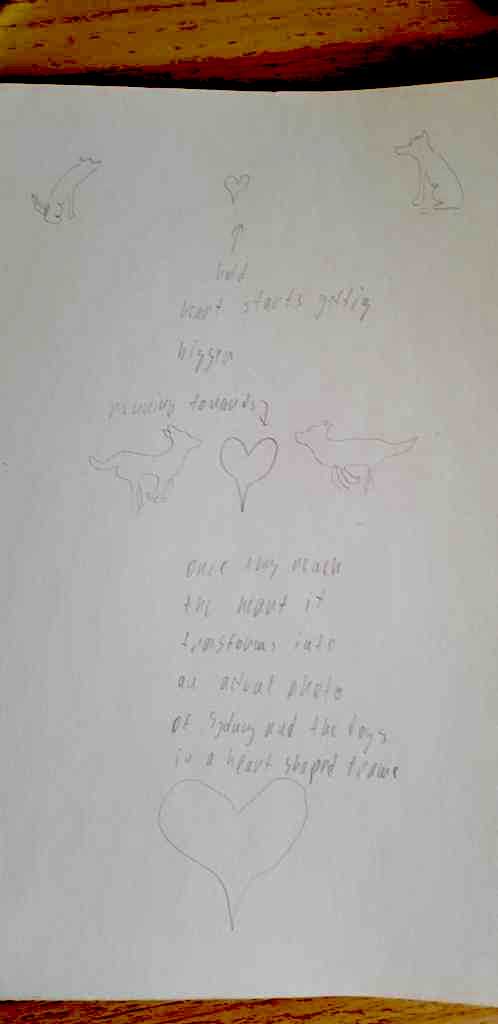 heart starts getting
bigger
running towards
once they reach
the heart it
transforms into
an actual photo
of Sydney and the dogs
in a heart shaped frame